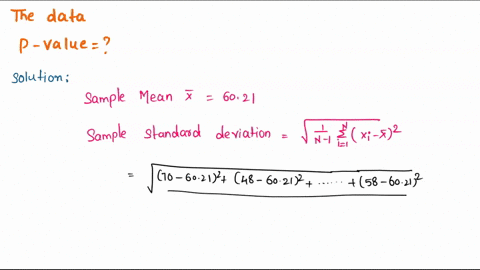 The data
P-value = ?
Solution:
Sample Mean x̄ = 60.21
Sample standard deviation = √(1/(N-1) Σ_{i=1}^{N} (xᵢ-x̄)²)
= √((70-60.21)²+ (48-60.21)²+ ...... + (58-60.21)²